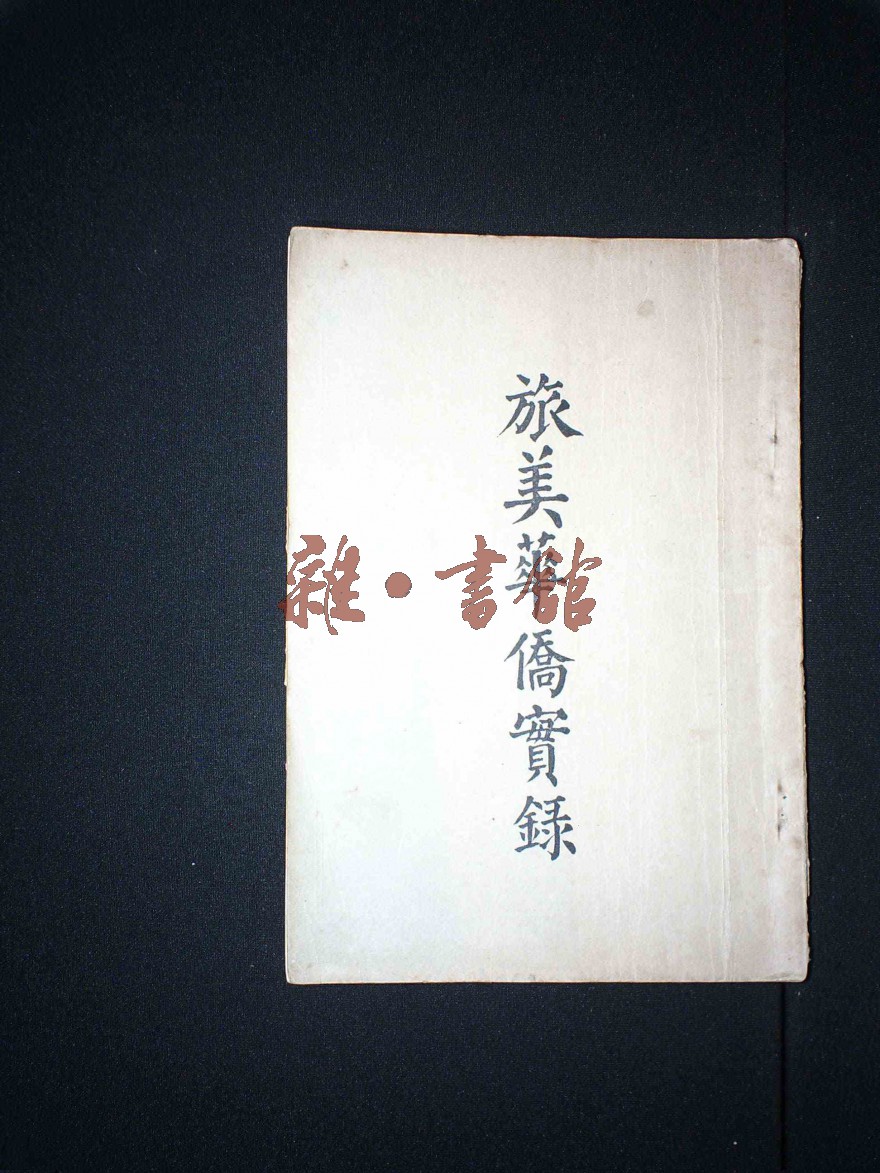 旅美華僑實録
雜·書館